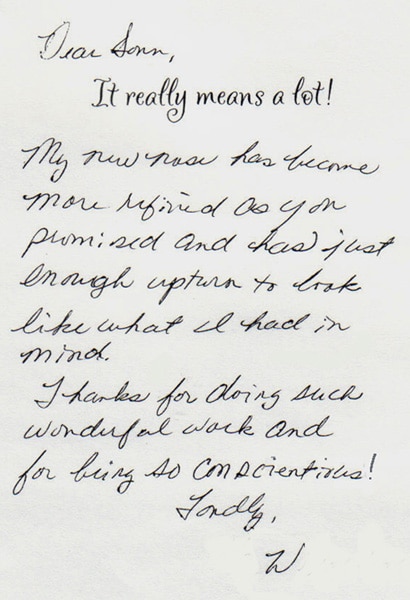 Dear Sonn,
It really means a lot!
My new nose has become
more refined as you
promised and has just
enough upturn to look
like what I had in
mind.
Thanks for doing such
wonderful work and
for being so conscientious!
Fondly,
W